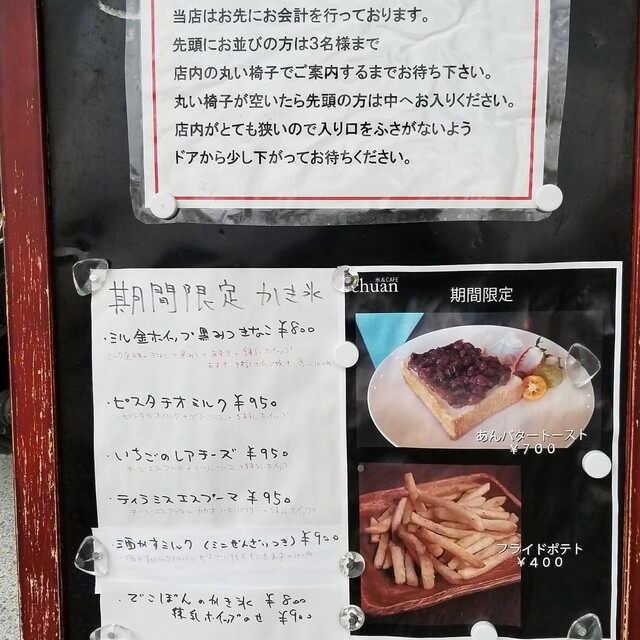 当店はお先にお会計を行っております。
先頭にお並びの方は3名様まで
店内の丸い椅子でご案内するまでお待ち下さい。
丸い椅子が空いたら先頭の方は中へお入りください。
店内がとても狭いので入り口をふさがないよう
ドアから少し下がってお待ちください。
期間限定 かき氷
・ミルク金ホイップ黒みつきなこ ¥800
・ピスタチオミルク ¥950
・いちごのレアチーズ ¥950
・ティラミスエスプーマ ¥950
・酒かすミルク (ミニぜんざいつき) ¥900
・でこぽんのかき氷 ¥800
練乳ホイップのせ ¥900
氷&CAFE
chuan
期間限定
あんバタートースト
¥700
フライドポテト
¥400